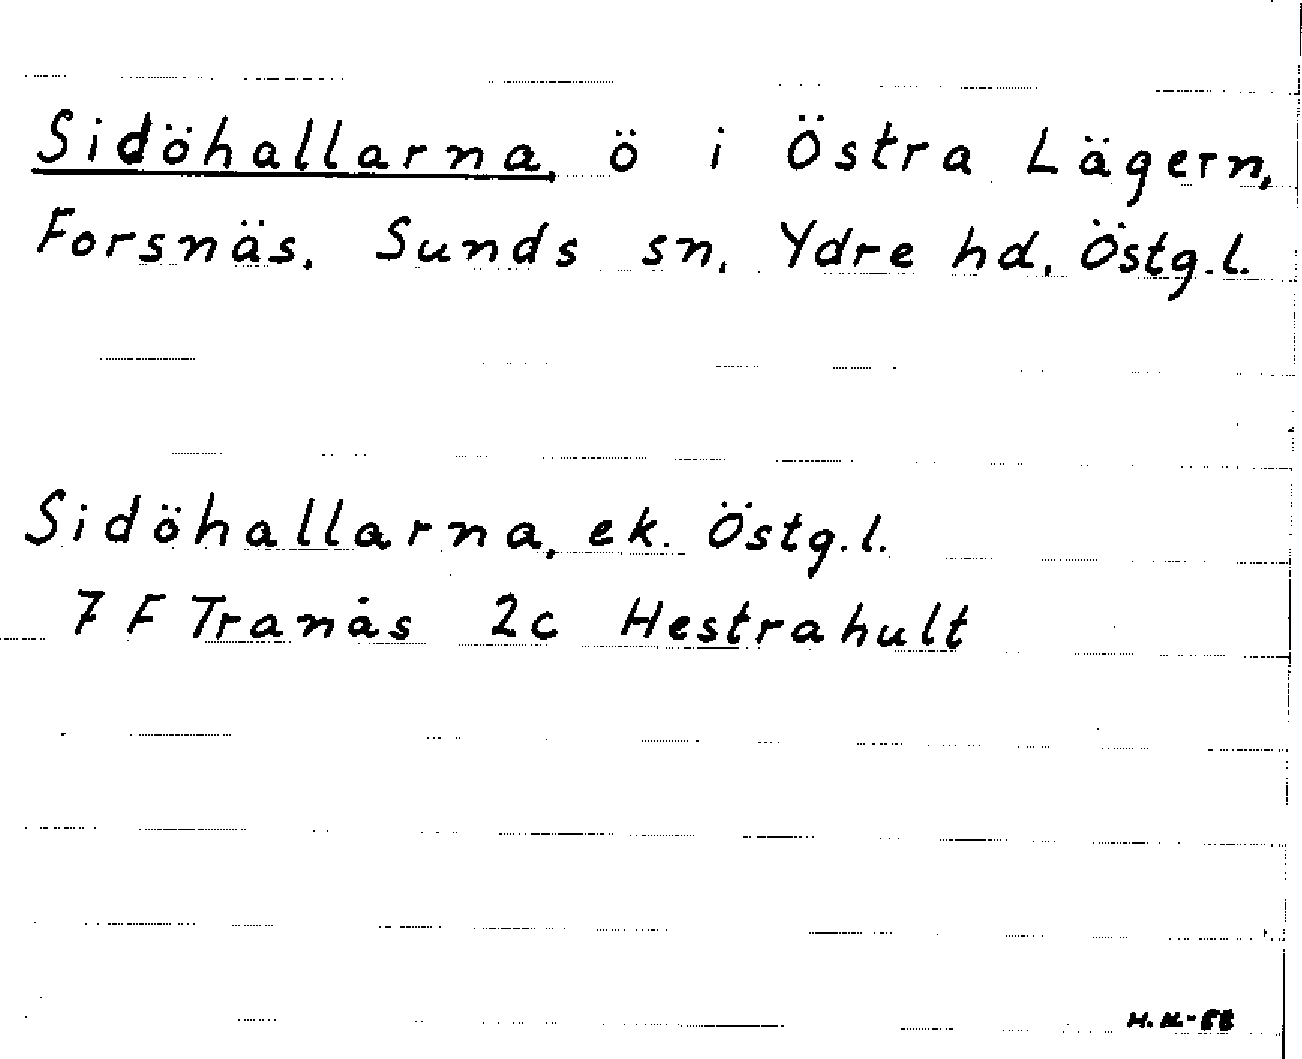 Sidöhallarna, ö i Östra Lägern,
Forsnäs, Sunds sn, Ydre hd, Östg.l.
Sidöhallarna, ek. Östg.l.
7 F Tranås 2c Hestrahult